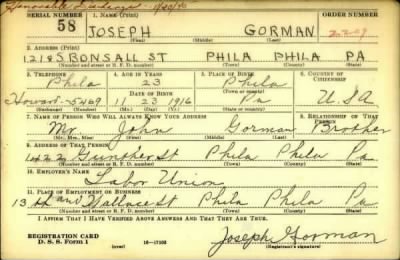 Honorable Discharge - 11/20/40
SERIAL NUMBER 1. NAME (Print) ORDER NUMBER
58 JOSEPH GORMAN 2229
(First) (Middle) (Last)
2. ADDRESS (Print)
1218 S BONSALL ST PHILA PHILA PA
(Number and street or R. F. D. number) (Town) (County) (State)
3. TELEPHONE 4. AGE IN YEARS 5. PLACE OF BIRTH 6. COUNTRY OF CITIZENSHIP
Phila 23 Phila
DATE OF BIRTH (Town or county)
Howard-5469 11 23 1916 Pa USA
(Exchange) (Number) (Mo.) (Day) (Yr.) (State or country)
7. NAME OF PERSON WHO WILL ALWAYS KNOW YOUR ADDRESS 8. RELATIONSHIP OF THAT PERSON
Mr. John Gorman Brother
(Mr., Mrs., Miss) (First) (Middle) (Last)
9. ADDRESS OF THAT PERSON
St Phila Phila Pa
(Number and street or R. F. D. number) (Town) (County) (State)
10. EMPLOYER'S NAME
Labor Union
11. PLACE OF EMPLOYMENT OR BUSINESS
13th and Wallace St Phila Phila Pa
(Number and street or R. F. D. number) (Town) (County) (State)
I AFFIRM THAT I HAVE VERIFIED ABOVE ANSWERS AND THAT THEY ARE TRUE.
REGISTRATION CARD
D. S. S. Form 1 (over) 16-17105 Joseph Gorman
(Registrant's signature)